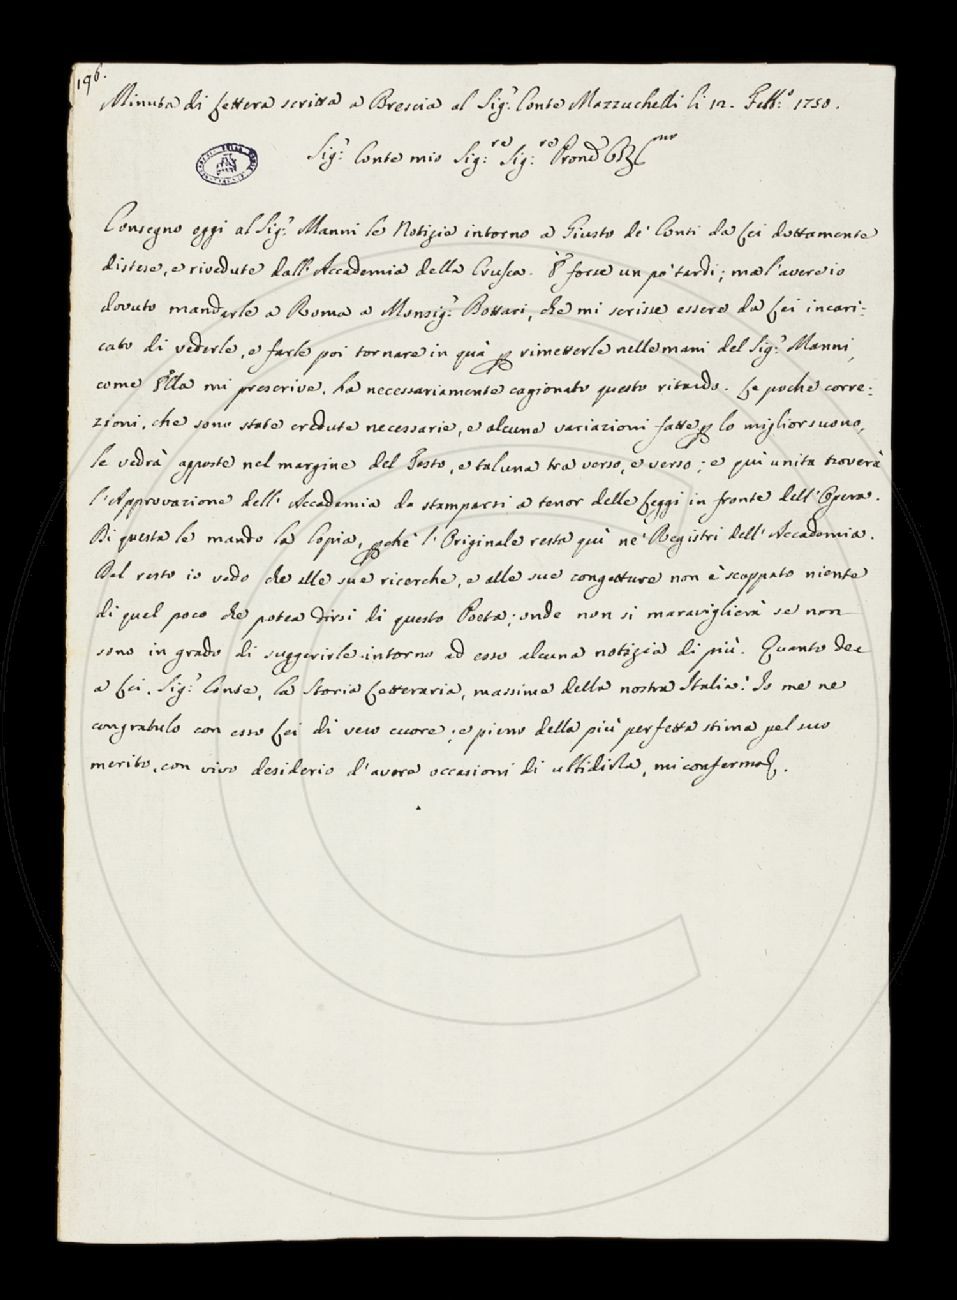 196.
Minuta di Lettera scritta a Brescia al Sig.r Conte Mazzuchelli li 12. Febb.o 1750.
Sig.r Conte mio Sig.re Sig.re Pron
Consegno oggi al Sig.r Manni le Notizie intorno a Giusto de' Conti da Lei dottamente
distese, e rivedute dall' Accademia della Crusca. È forse un po' tardi; ma l'avere io
dovuto mandarle a Roma a Monsig.r Bottari, che mi scrisse essere da Lei incari-
cato di vederle, e farle poi tornare in quà p rimetterle nelle mani del Sig.r Manni,
come Ella mi prescrive, ha necessariamente cagionato questo ritardo. Le poche corre-
zioni, che sono state credute necessarie, e alcune variazioni fatte p lo miglior suono,
le vedrà apposte nel margine del Testo, e taluna tra verso, e verso; e quì unita troverà
l'Approvazione dell' Accademia da stamparsi a tenor delle Leggi in fronte dell' Opera.
Di questa le mando la Copia, pchè l'Originale resta quì ne' Registri dell' Accademia.
Del resto io vedo che alle sue ricerche, e alle sue congetture non è scappato niente
di quel poco che potea dirsi di questo Poeta; onde non si maraviglierà se non
sono in grado di suggerirle intorno ad esso alcuna notizia di più. Quanto dee
a Lei, Sig.r Conte, la Storia Letteraria, massime della nostra Italia! Io me ne
congratulo con esso Lei di vero cuore; e pieno della più perfetta stima pel suo
merito, con vivo desiderio d'avere occasioni di ubbidirla, mi confermo